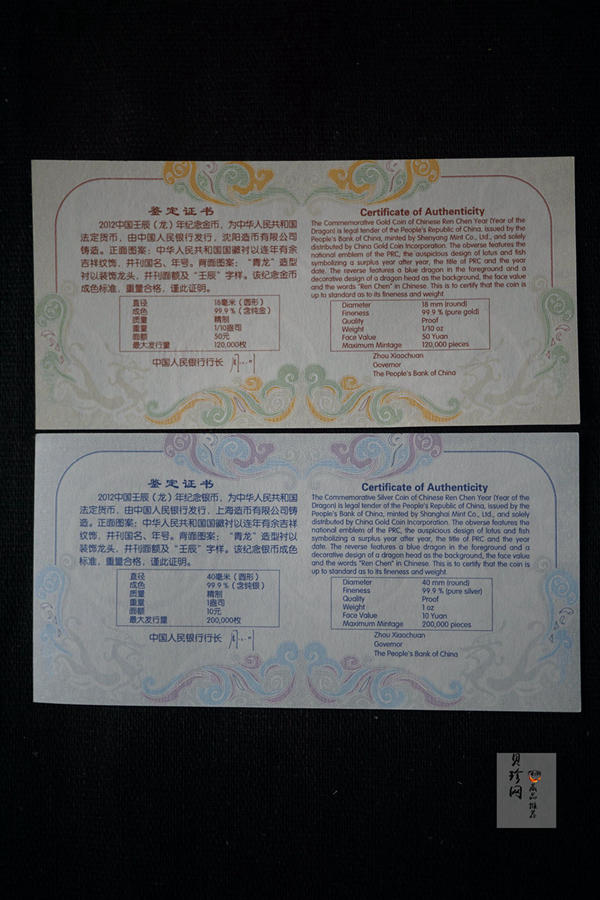 鉴定证书
2012中国壬辰（龙）年纪念金币，为中华人民共和国
法定货币，由中国人民银行发行，沈阳造币有限公司
铸造。正面图案：中华人民共和国国徽衬以连年有余
吉祥纹饰，并刊国名、年号。背面图案：“青龙”造型
衬以装饰龙头，并刊面额及“壬辰”字样。该纪念金币
成色标准，重量合格，谨此证明。
直径 18毫米（圆形）
成色 99.9%（含纯金）
质量 精制
重量 1/10盎司
面额 50元
最大发行量 120,000枚
中国人民银行行长
Certificate of Authenticity
The Commemorative Gold Coin of Chinese Ren Chen Year (Year of the
Dragon) is legal tender of the People's Republic of China, issued by the
People's Bank of China, minted by Shenyang Mint Co., Ltd., and solely
distributed by China Gold Coin Incorporation. The obverse features the
national emblem of the PRC, the auspicious design of lotus and fish
symbolizing a surplus year after year, the title of PRC and the year
date. The reverse features a blue dragon in the foreground and a
decorative design of a dragon head as the background, the face value
and the words "Ren Chen" in Chinese. This is to certify that the coin is
up to standard as to its fineness and weight.
Diameter 18 mm (round)
Fineness 99.9 % (pure gold)
Quality Proof
Weight 1/10 oz
Face Value 50 Yuan
Maximum Mintage 120,000 pieces
Zhou Xiaochuan
Governor
The People's Bank of China
鉴定证书
2012中国壬辰（龙）年纪念银币，为中华人民共和国
法定货币，由中国人民银行发行，上海造币有限公司铸
造。正面图案：中华人民共和国国徽衬以连年有余吉祥
纹饰，并刊国名、年号。背面图案：“青龙”造型衬以
装饰龙头，并刊面额及“壬辰”字样。该纪念银币成色
标准，重量合格，谨此证明。
直径 40毫米（圆形）
成色 99.9%（含纯银）
质量 精制
重量 1盎司
面额 10元
最大发行量 200,000枚
中国人民银行行长
Certificate of Authenticity
The Commemorative Silver Coin of Chinese Ren Chen Year (Year of the
Dragon) is legal tender of the People's Republic of China, issued by the
People's Bank of China, minted by Shanghai Mint Co., Ltd., and solely
distributed by China Gold Coin Incorporation. The obverse features the
national emblem of the PRC, the auspicious design of lotus and fish
symbolizing a surplus year after year, the title of PRC and the year
date. The reverse features a blue dragon in the foreground and a
decorative design of a dragon head as the background, the face value
and the words "Ren Chen" in Chinese. This is to certify that the coin is
up to standard as to its fineness and weight.
Diameter 40 mm (round)
Fineness 99.9 % (pure silver)
Quality Proof
Weight 1 oz
Face Value 10 Yuan
Maximum Mintage 200,000 pieces
Zhou Xiaochuan
Governor
The People's Bank of China
贝珍网